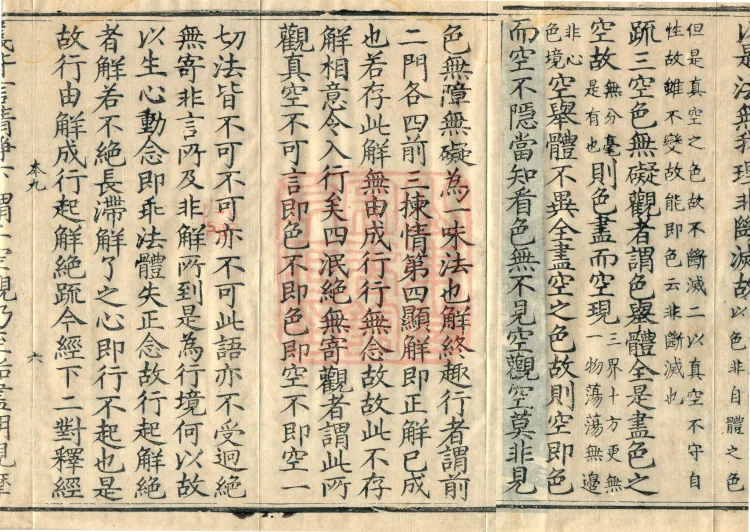 以是法無我理非斷滅故以色非自體之色
但是真空之色故不斷滅二以真空不守自
性故雖不變故能即色云非斷滅也
疏三空色無礙觀者謂色舉體全是盡色之
空故無分毫是有也則色盡而空現三界十方更無一物蕩蕩無邊
非心色境空舉體不異全盡空之色故則空即色
而空不隱當知看色無不見空觀空莫非見
色無障無礙為一味法也解終趣行者謂前
二門各四前三揀情第四顯解即正解已成
也若存此解無由成行行無念故故此不存
解相意令入行矣四泯絕無寄觀者謂此所
觀真空不可言即色不即色即空不即空一
切法皆不可不可亦不可此語亦不受迥絕
無寄非言所及非解所到是為行境何以故
以生心動念即乖法體失正念故行起解絕
者解若不絕長滯解了之心即行不起也是
故行由解成行起解絕疏今經下二對釋經
本九
六